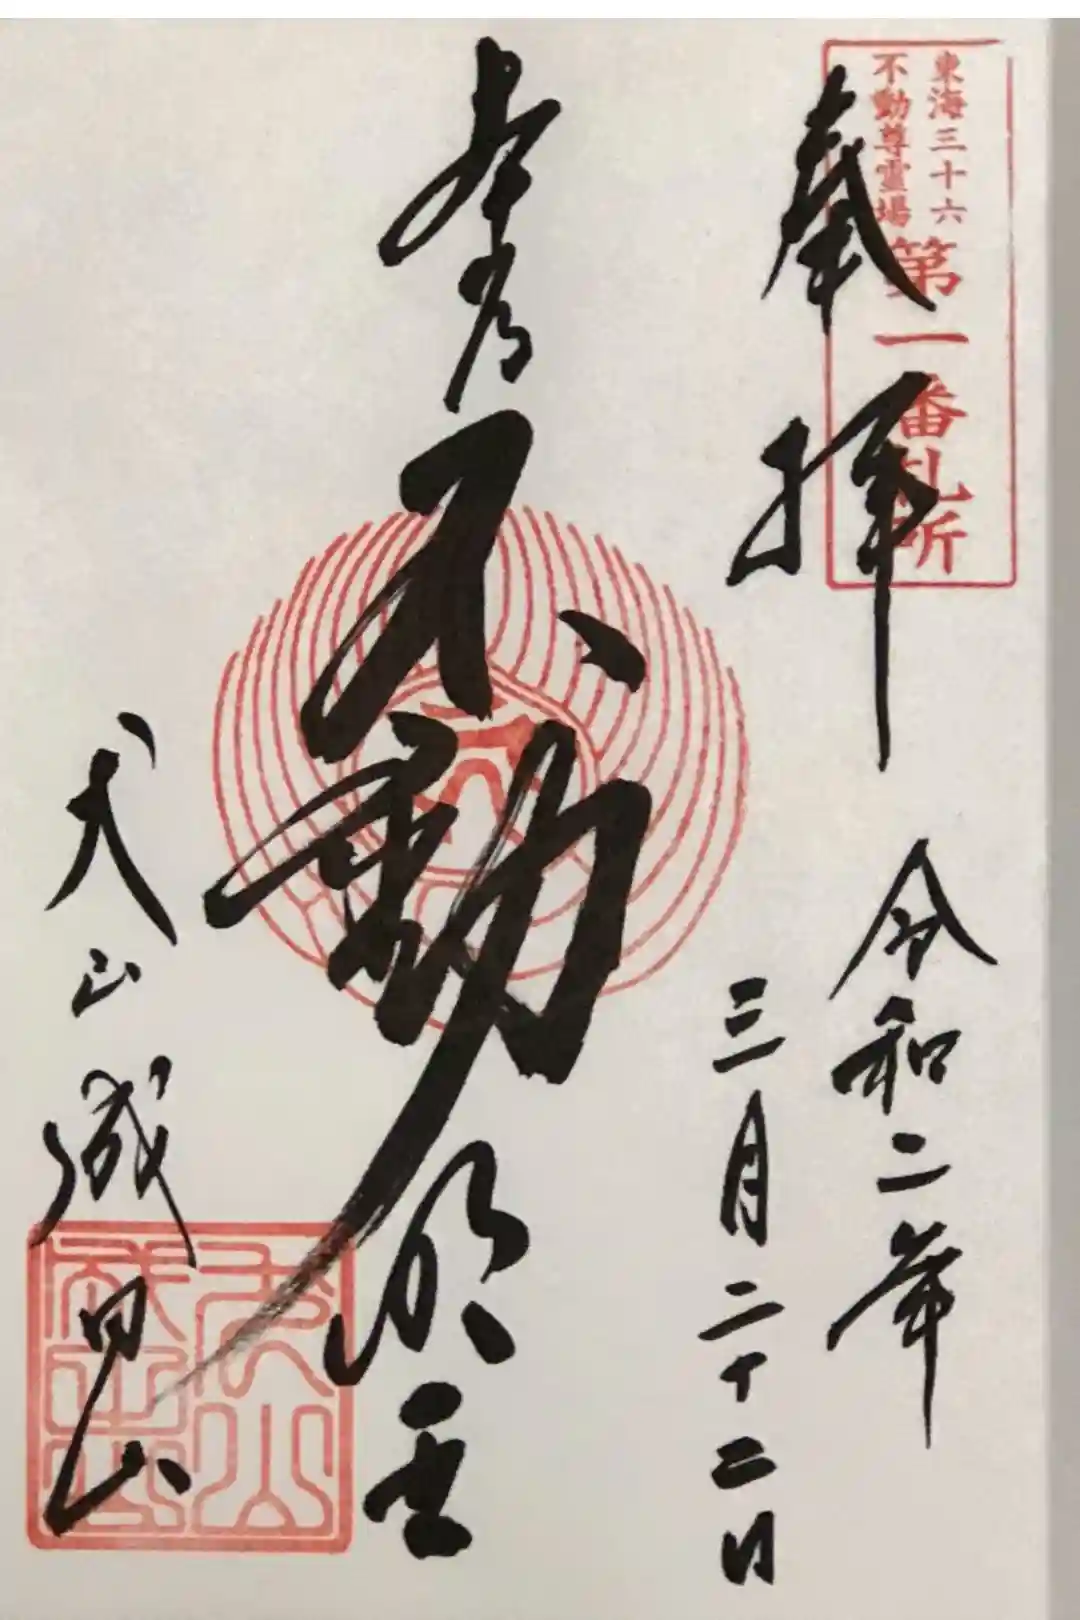 東海三十六
不動尊霊場
第一番札所
奉拝
令和二年
三月二十二日
本尊不動明王
犬山成田山
犬山
成田山